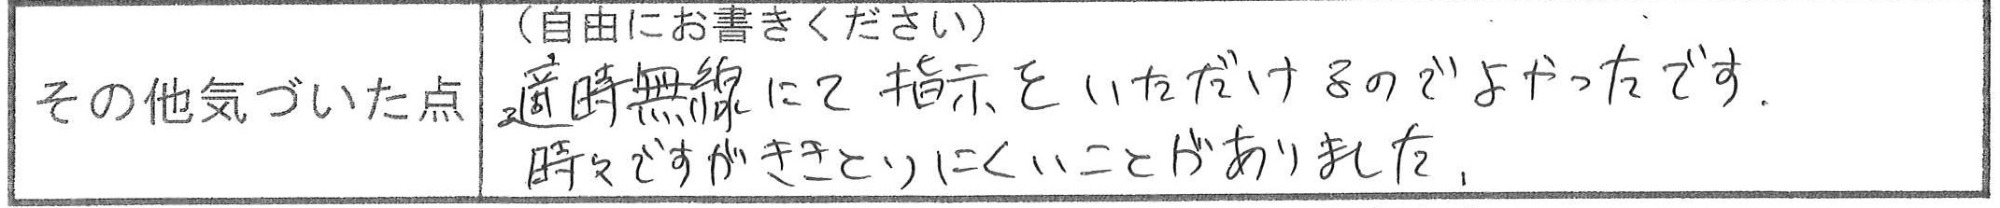 その他気づいた点
(自由にお書きください)
適時無線にて指示をいただけるのでよかったです.
時々ですがききとりにくいことがありました.